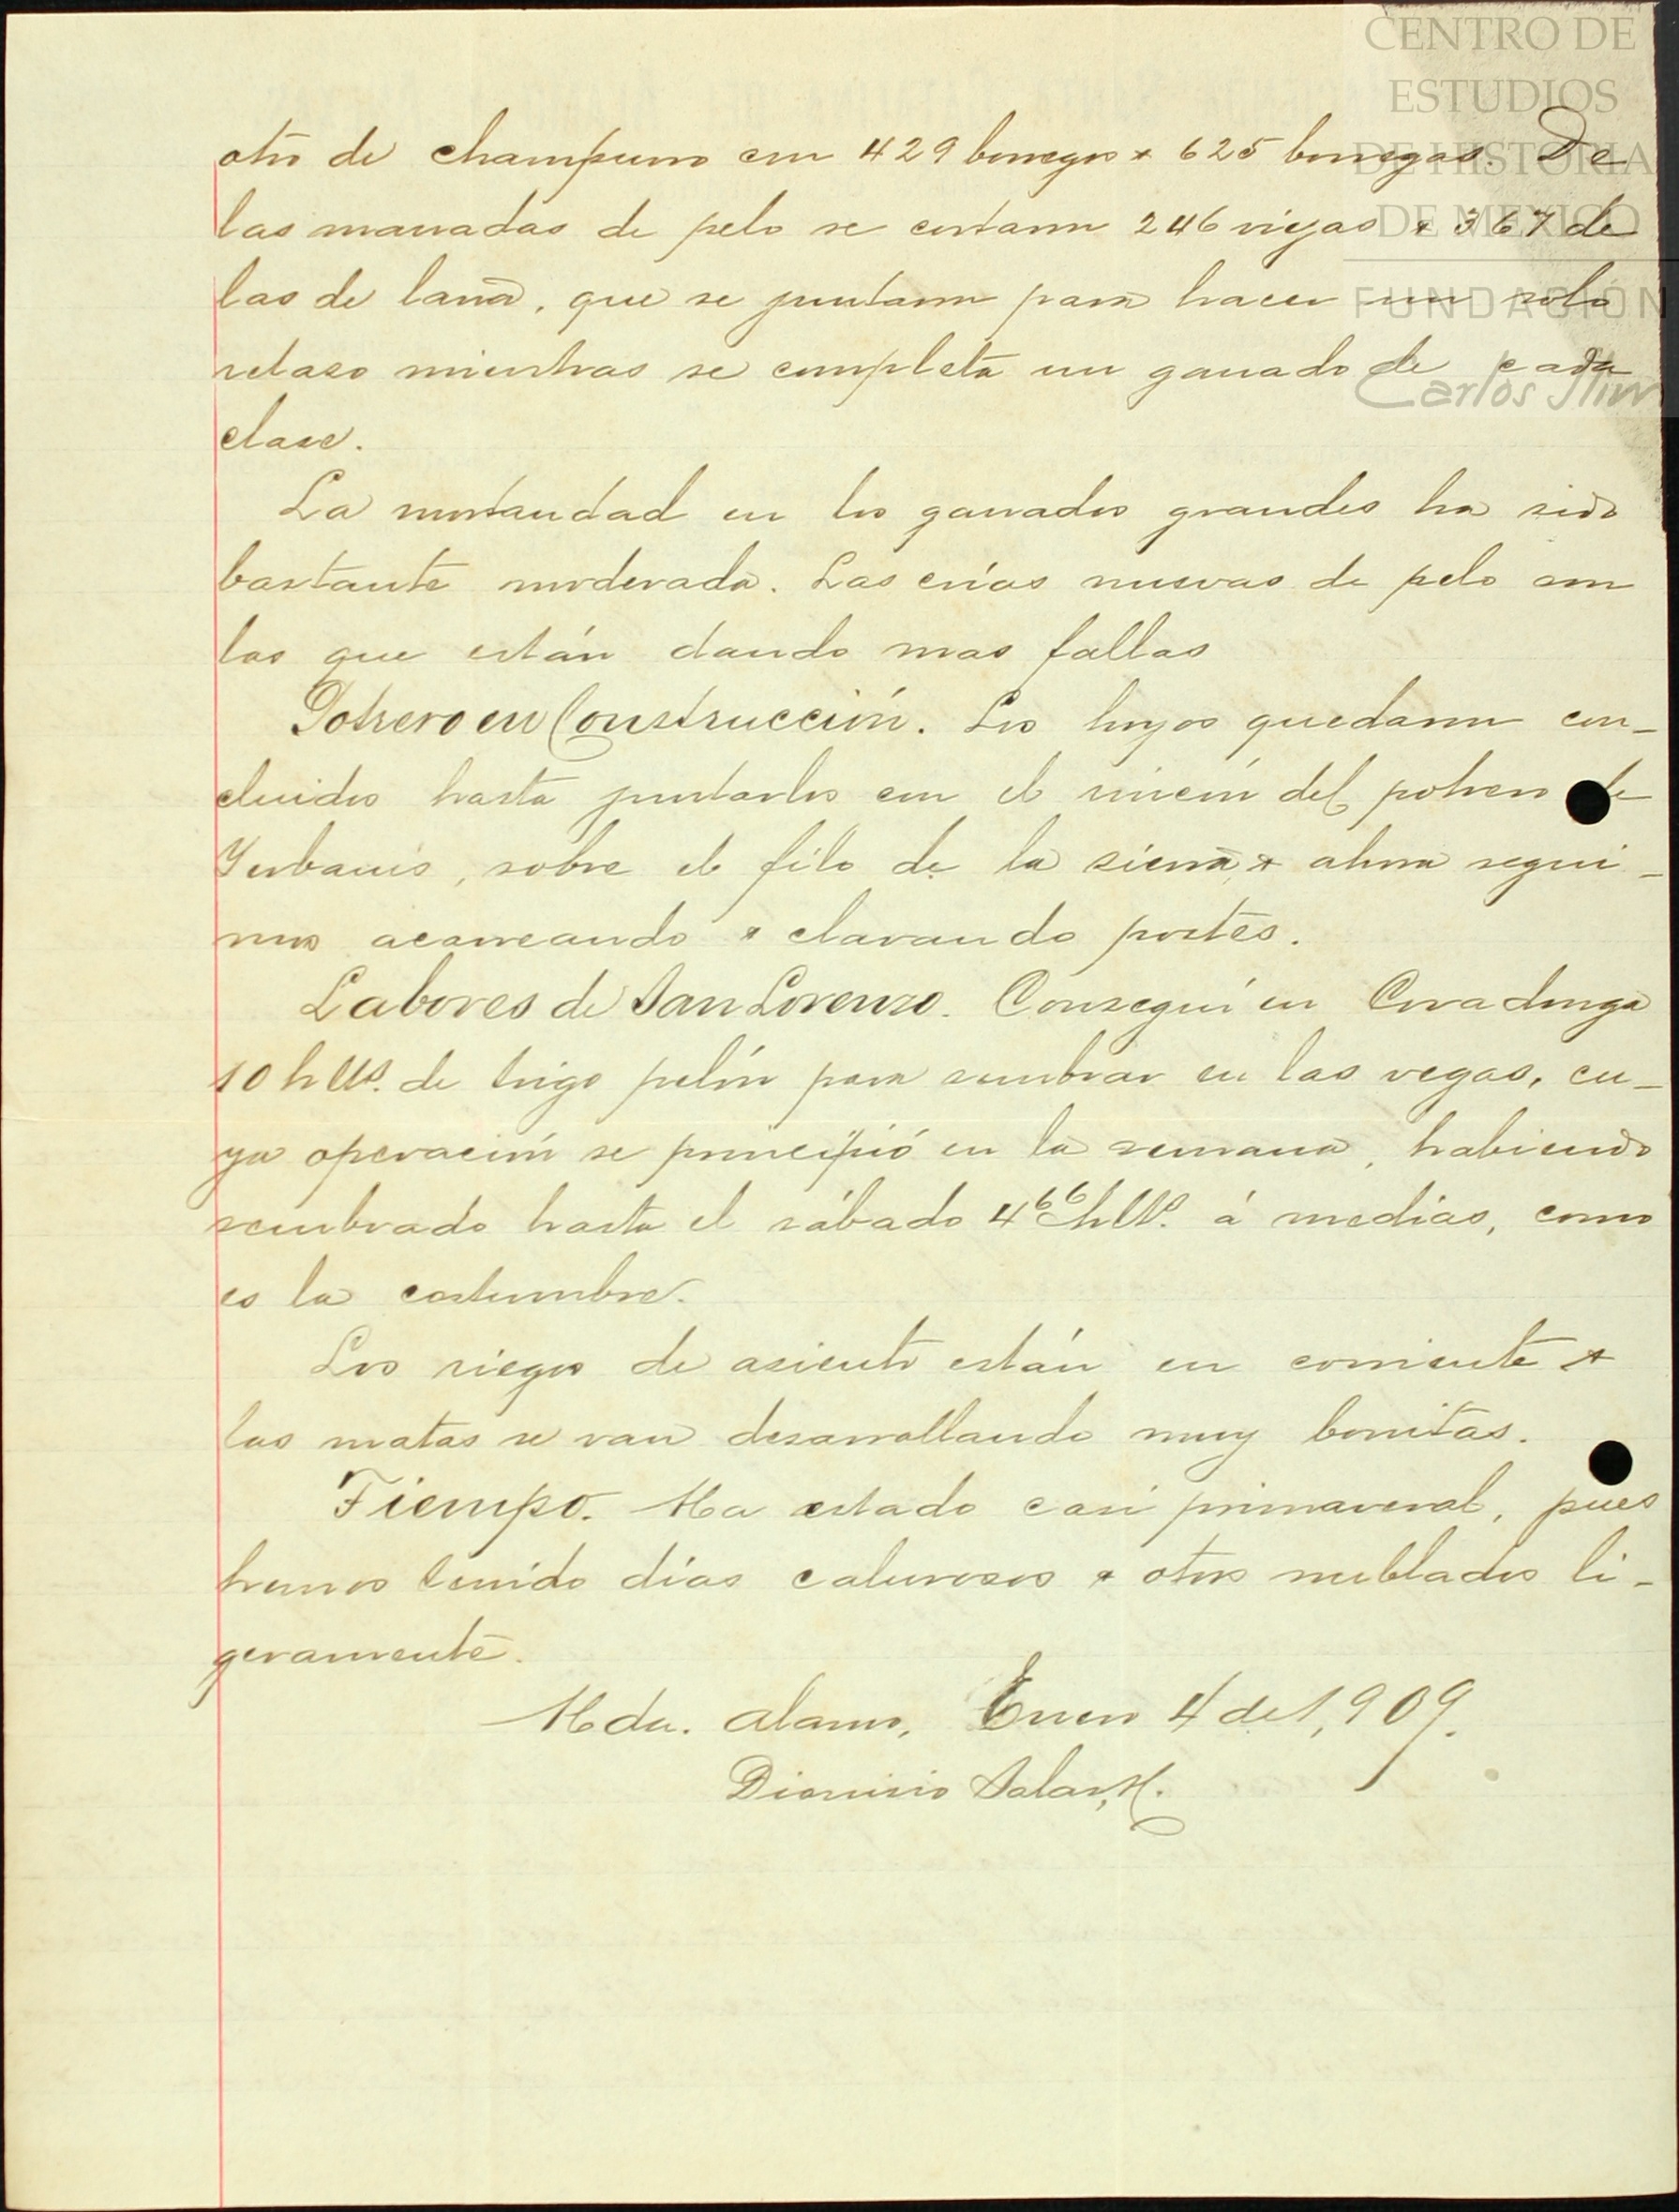 CENTRO DE
ESTUDIOS
DE HISTORIA
DE MEXICO
FUNDACIÓN
Carlos Slim
otro de champurro con 429 borregos & 625 borregas. De
las manadas de pelo se cortaron 246 viejas & 367 de
las de lana, que se juntaron para hacer un solo
retaso mientras se completa un ganado de cada
clase.
La mortandad en los ganados grandes ha sido
bastante moderada. Las crías nuevas de pelo son
las que están dando mas fallas
Potrero en Construcción. Los hoyos quedaron con-
cluidos hasta juntarlos con el rincón del potrero de
Yerbanis, sobre el filo de la sierra, & ahora segui-
mos acarreando & clavando postes.
Labores de San Lorenzo. Conseguí en Covadonga
10 hlts. de trigo pelón para sembrar en las vegas, cu-
ya operación se principió en la semana, habiendo
sembrado hasta el sábado 4 66 hlts. á medias, como
es la costumbre.
Los riegos de asiento están en corriente &
las matas se van desarrollando muy bonitas.
Tiempo. Ha estado casi primaveral, pues
hemos tenido días calurosos & otros nublados li-
geramente.
Hda. Alamo, Enero 4 de 1,909.
Dionisio Salas, H.